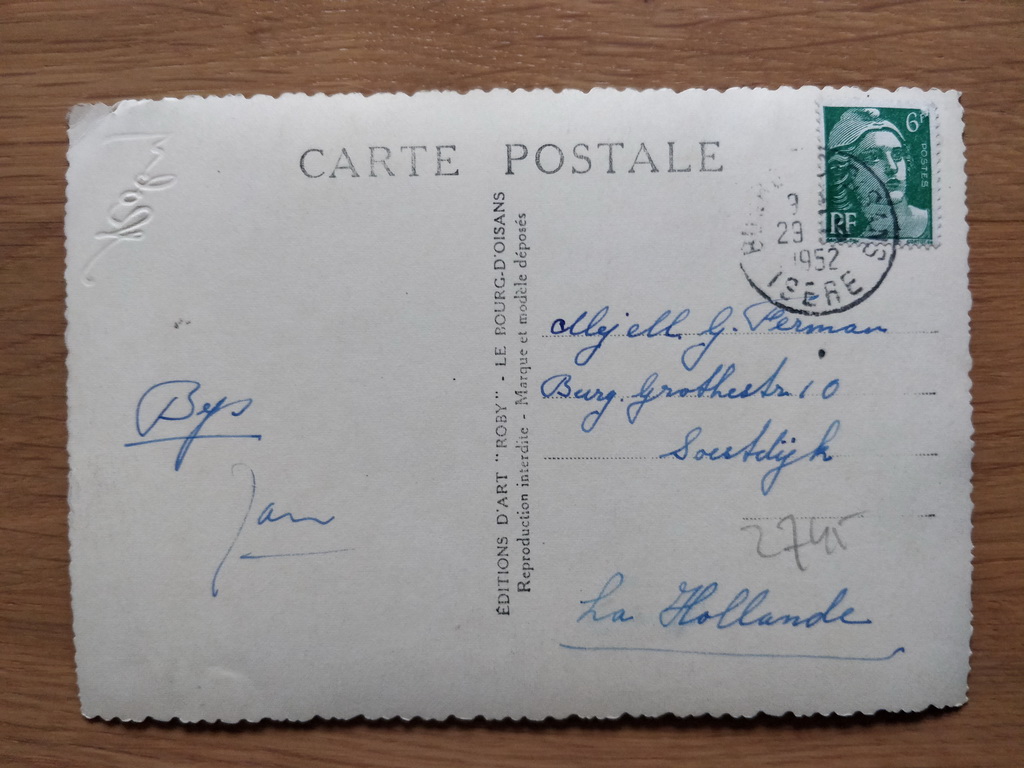 CARTE POSTALE
6F
POSTES
RF
9
29
1952
ISERE
ÉDITIONS D'ART "ROBY" - LE BOURG-D'OISANS
Reproduction interdite - Marque et modèle déposés
G. Perman
Burg. Grothestr. 10
Soestdijk
2745
La Hollande
Jan